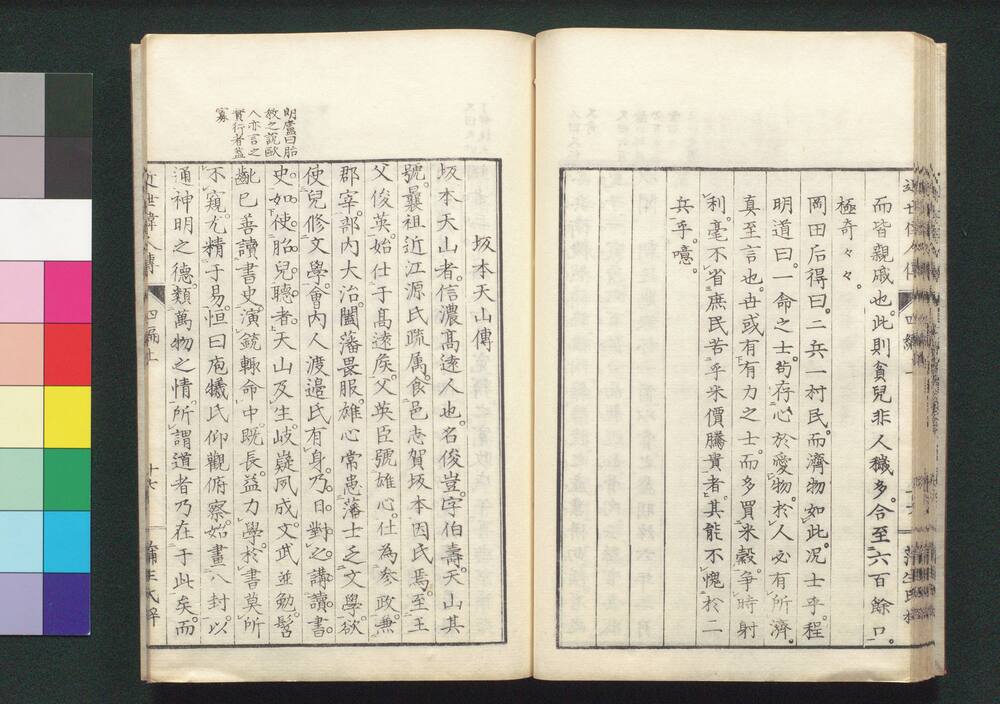 而皆親戚也。此則貪兒非人穢多。合至六百餘口。
極奇々々。
岡田后得曰。二兵一村民。而濟物如此。况士乎。程
明道曰。一命之士。苟存心於愛物。於人必有所濟。
真至言也。世或有有力之士。而多買米穀。爭時射
利。毫不省庶民苦乎米價騰貴者。其能不愧於二
兵乎。噫。
坂本天山傳
坂本天山者。信濃高遠人也。名俊豈。字伯壽。天山其
號。曩祖近江源氏疏属。食邑志賀坂本因氏焉。至王
父俊英。始仕于高遠矦。父英臣號雄心。仕為参政。兼
郡宰。部内大治。闔藩畏服。雄心常患藩士乏文學。欲
使兒修文學。會内人渡邉氏有身。乃日對之。講讀書
史。如使胎兒聽者。天山及生。岐嶷夙成。文武並勉。髫
齔已善讀書史。演銃輙命中。既長。益力學。於書莫所
不窺。尤精于易。恒曰庖犧氏仰觀俯察。始畫八封。以
通神明之德。類萬物之情。所謂道者乃在于此矣。而
明盧曰胎
教之說歐
人亦言之
實行者盖
寡
近世偉人傳
四編上
十七
蒲生氏梓